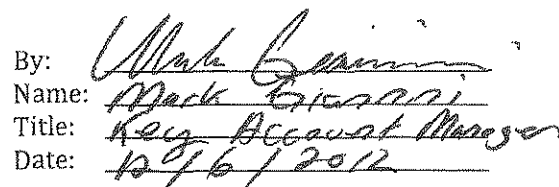 By: Mark Gianni
Name: Mark Gianni
Title: Key Account Manager
Date: 12/6/2012